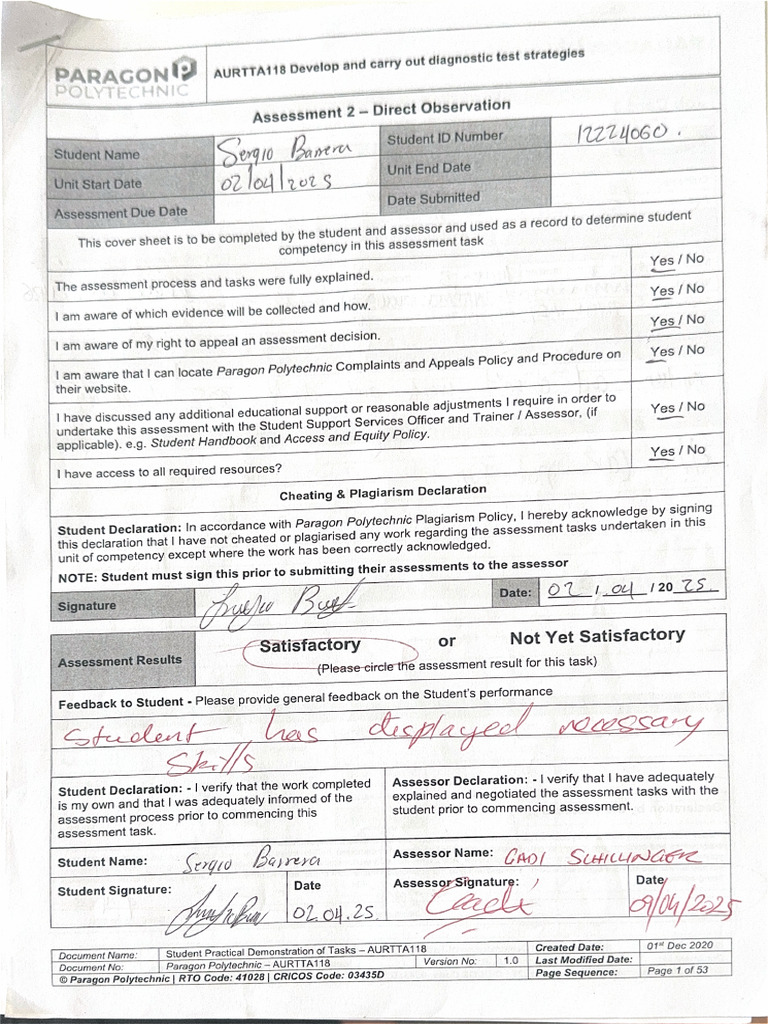 PARAGON
POLYTECHNIC
AURTTA118 Develop and carry out diagnostic test strategies
Assessment 2 – Direct Observation
Student Name Sergio Barrera Student ID Number 12224060.
Unit Start Date 02/04/2025 Unit End Date
Assessment Due Date Date Submitted
This cover sheet is to be completed by the student and assessor and used as a record to determine student
competency in this assessment task
The assessment process and tasks were fully explained. Yes / No
I am aware of which evidence will be collected and how. Yes / No
I am aware of my right to appeal an assessment decision. Yes / No
I am aware that I can locate Paragon Polytechnic Complaints and Appeals Policy and Procedure on
their website. Yes / No
I have discussed any additional educational support or reasonable adjustments I require in order to
undertake this assessment with the Student Support Services Officer and Trainer / Assessor, (if
applicable). e.g. Student Handbook and Access and Equity Policy. Yes / No
I have access to all required resources? Yes / No
Cheating & Plagiarism Declaration
Student Declaration: In accordance with Paragon Polytechnic Plagiarism Policy, I hereby acknowledge by signing
this declaration that I have not cheated or plagiarised any work regarding the assessment tasks undertaken in this
unit of competency except where the work has been correctly acknowledged.
NOTE: Student must sign this prior to submitting their assessments to the assessor
Signature Date: 02 / 04 / 20 25
Assessment Results Satisfactory or Not Yet Satisfactory
(Please circle the assessment result for this task)
Feedback to Student - Please provide general feedback on the Student's performance
Student has displayed necessary
skills
Student Declaration: - I verify that the work completed
is my own and that I was adequately informed of the
assessment process prior to commencing this
assessment task.
Assessor Declaration: - I verify that I have adequately
explained and negotiated the assessment tasks with the
student prior to commencing assessment.
Student Name: Sergio Barrera
Assessor Name: GADI SCHILLINGER
Student Signature: Date 02.04.25
Assessor Signature: Date 09/04/2025
Document Name: Student Practical Demonstration of Tasks – AURTTA118 Created Date: 01st Dec 2020
Document No: Paragon Polytechnic – AURTTA118 Version No: 1.0 Last Modified Date:
© Paragon Polytechnic | RTO Code: 41028 | CRICOS Code: 03435D Page Sequence: Page 1 of 53